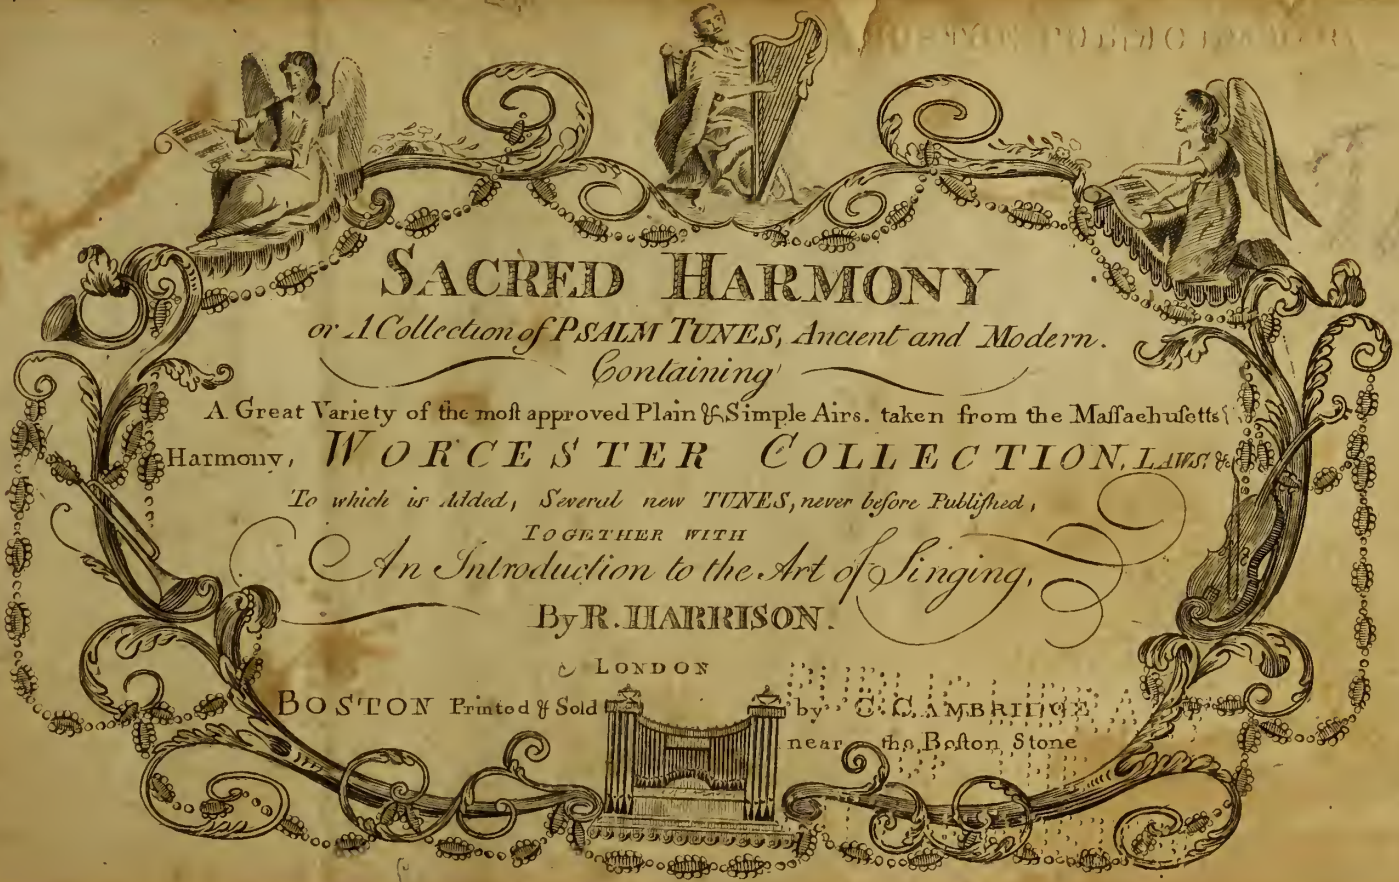 SACRED HARMONY
or A Collection of PSALM TUNES, Ancient and Modern.
Containing
A Great Variety of the moſt approved Plain & Simple Airs. taken from the Maſſachuſetts
Harmony, WORCESTER COLLECTION, LAWS, &c
To which is Added, Several new TUNES, never before Publiſhed,
TOGETHER WITH
An Introduction to the Art of Singing,
By R. HARRISON.
LONDON
BOSTON Printed & Sold by C. CAMBRIDGE
near the Boſton Stone